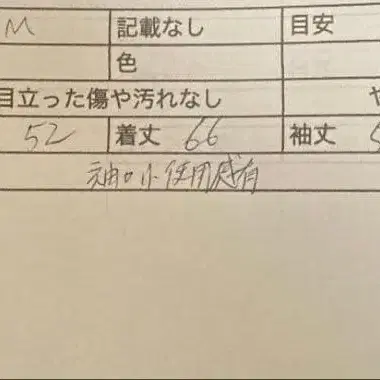 M 記載なし 目安
色
目立った傷や汚れなし
52 着丈 66 袖丈
袖口小使用感有